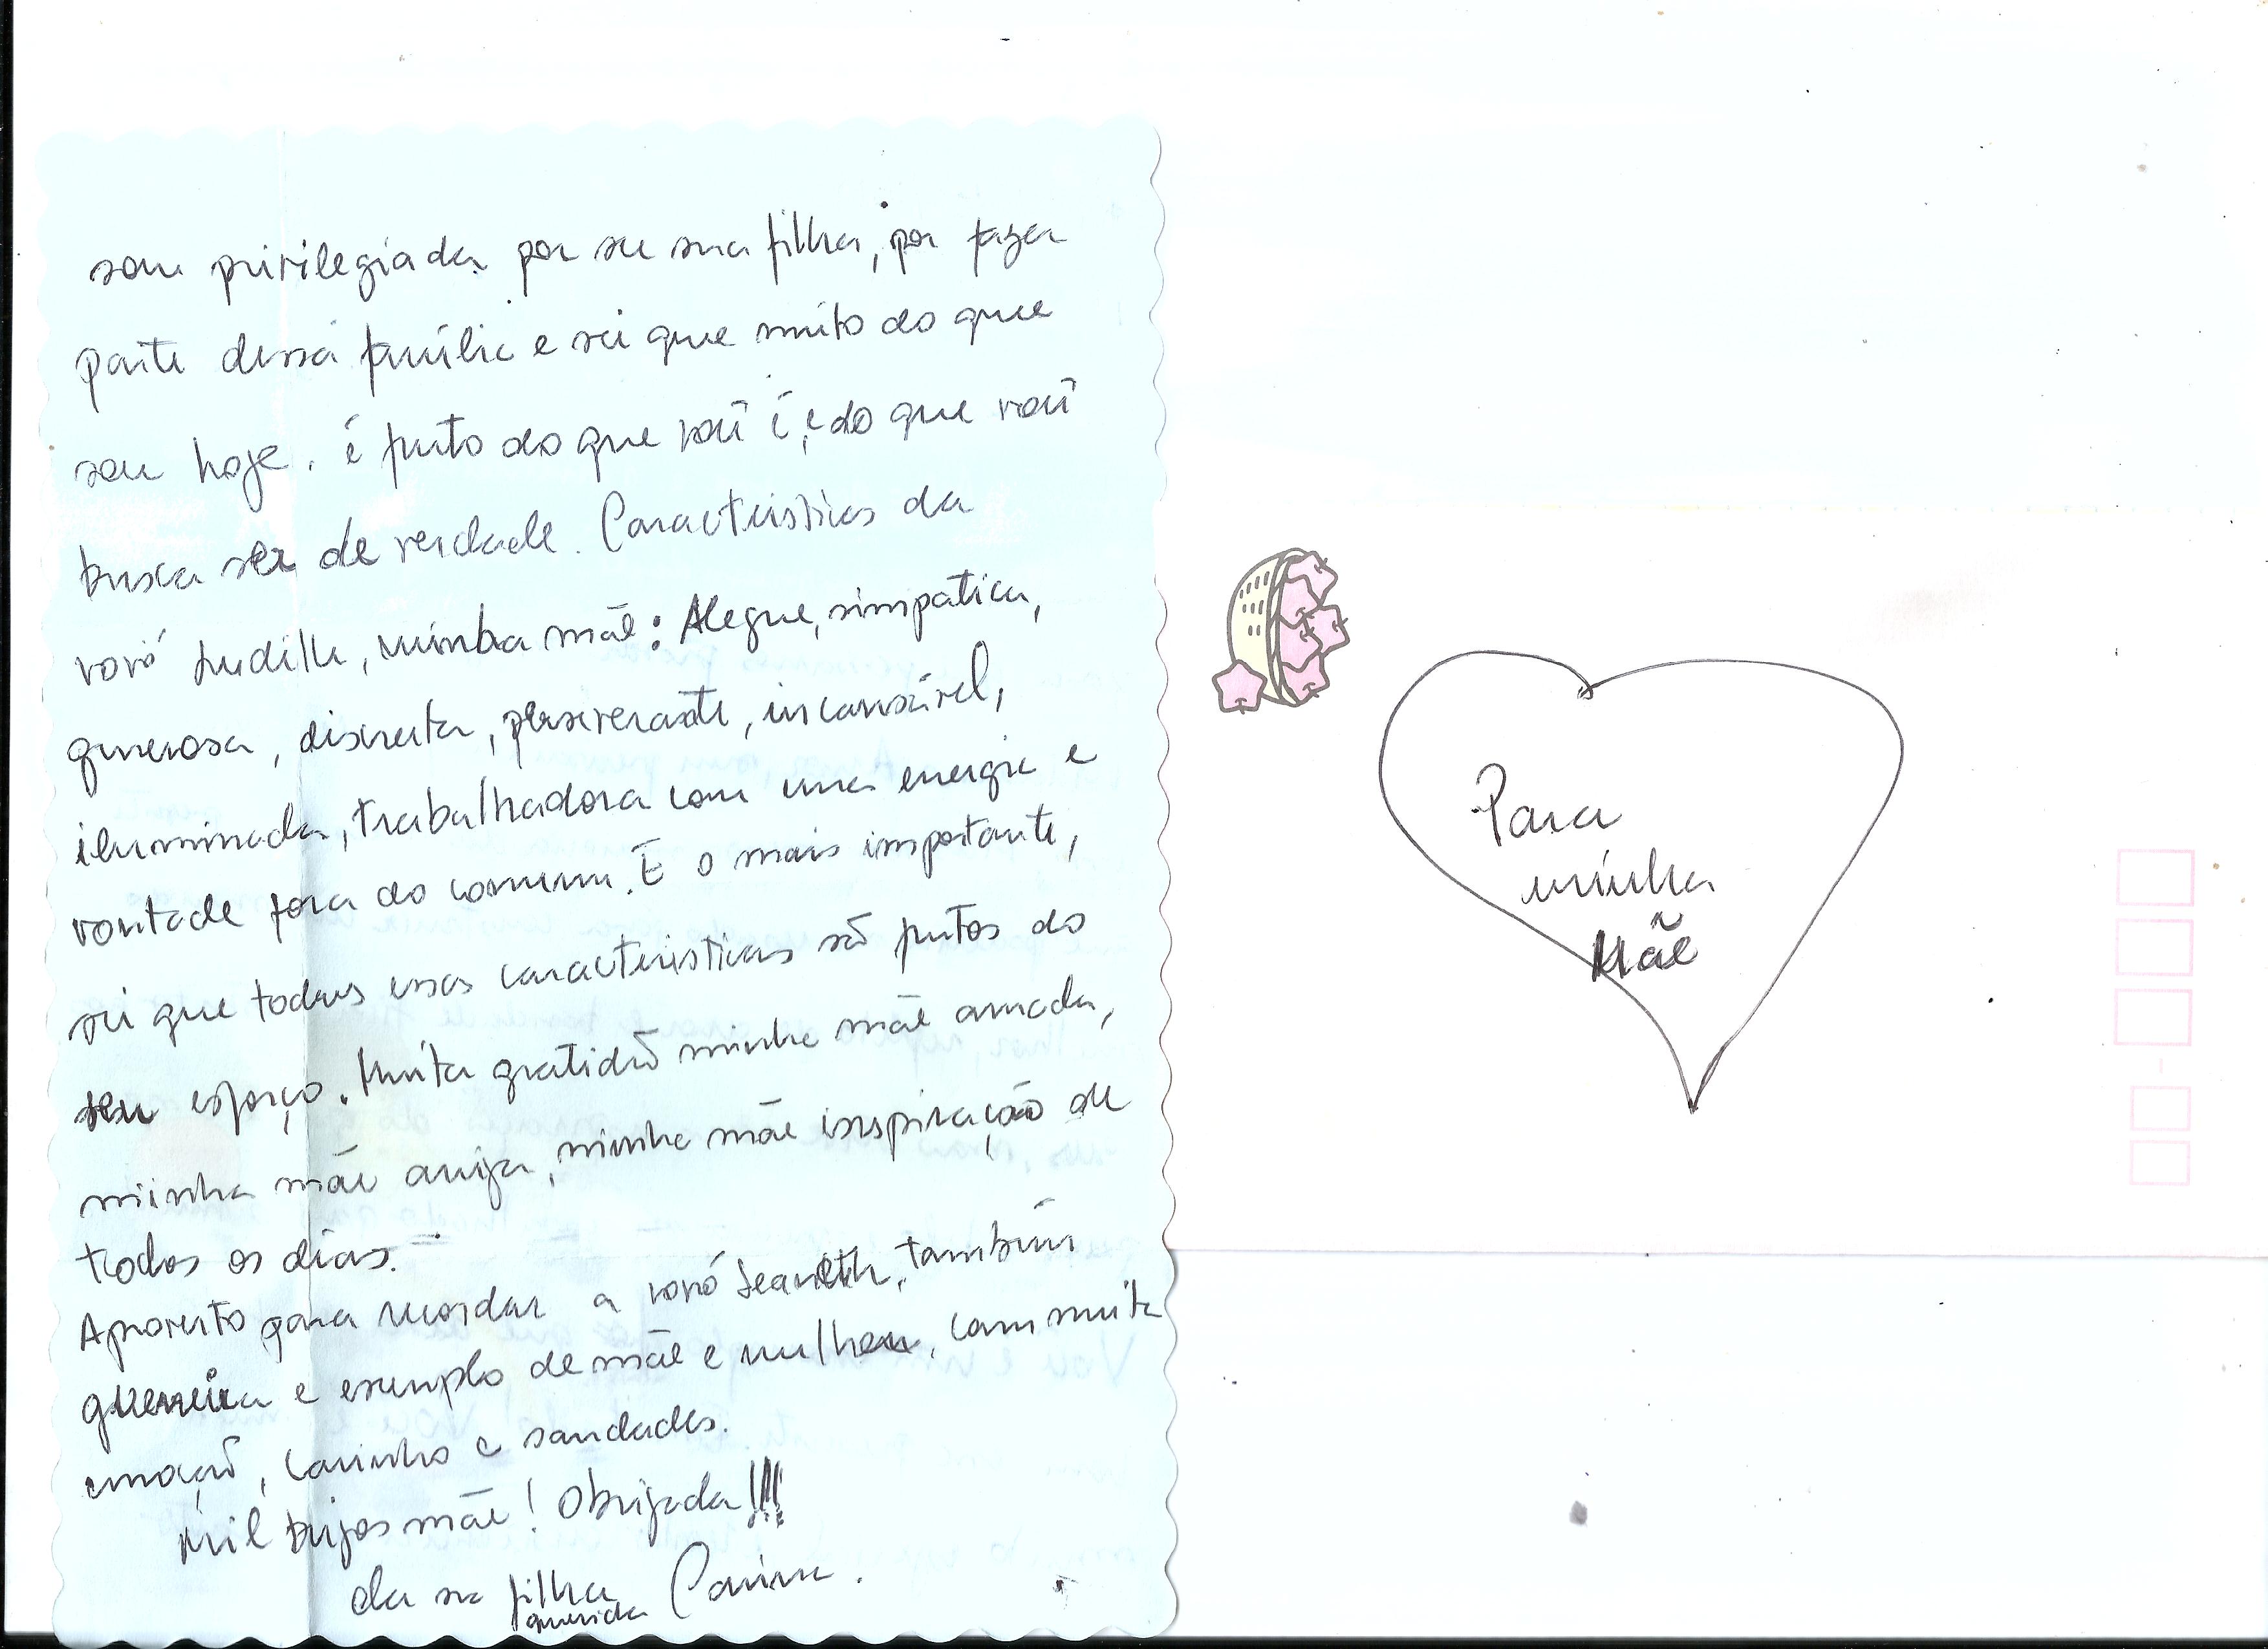 sou privilegiada por ser sua filha, por fazer
parte dessa família e sei que muito do que
sou hoje. é fruto do que você é, e do que você
busca ser de verdade. Características da
vovó, minha mãe: Alegre, simpática,
generosa, discreta, perseverante, incansável,
iluminada, trabalhadora com uma energia e
vontade fora do comum. E o mais importante,
sei que todas essas características são frutos do
seu esforço. Muita gratidão minha mãe amada,
minha mãe amiga, minha mãe inspiração de
todos os dias.
Aproveito para recordar a vovó, também
guerreira e exemplo de mãe e mulher, com muita
emoção, carinho e saudades.
Mil beijos mãe! Obrigada!!!
da sua filha querida
Para
minha
Mãe